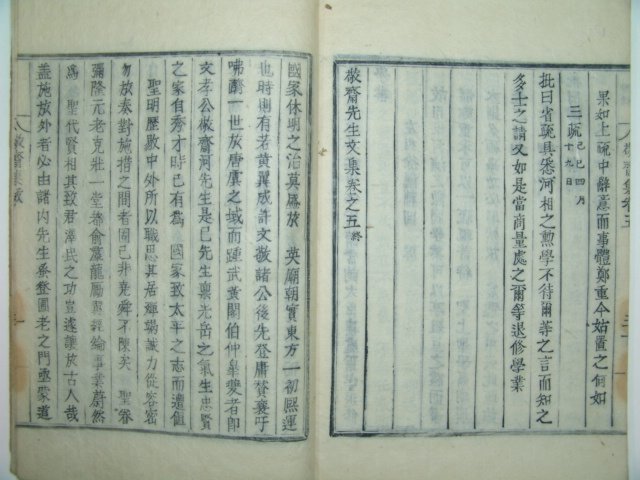 果如上疏中辭意而事體鄭重今姑置之何如
三疏己巳四月十九日
批曰省疏具悉河相之勲學不待爾等之言而知之
多士之請又如是當商量處之爾等退修學業
敬齋先生文集卷之五終
敬齋集卷五
國家休明之治莫盛於 英廟朝實東方一初熙運
也時則有若黃翼成許文敬諸公後先登庸賛襄吁
咈躋一世於唐虞之域而踵武黃閣伯仲皐夔者卽
文孝公敬齋河先生是已先生禀光岳之氣生忠賢
之家自秀才時已有爲 國家致太平之志而遭値
聖明歷敭中外所以職思其居輝竭誠力從容密
勿於奏對施措之間者固已非堯舜不陳矣 聖眷
彌隆元老克壯一堂都兪蓍龍勵翼經綸事業蔚然
爲 聖代賢相其致君澤民之功豈遽讓於古人哉
盖施於外者必由諸內先生蚤登圃老之門亟蒙道
敬齋集跋